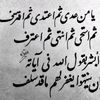 يا من عدى ثم اعتدى ثم اقترف
ثم انتهى ثم ارعوى ثم اعترف
أبشر بقول الله في آياته
إن ينتهوا يغفر لهم ما قد سلف